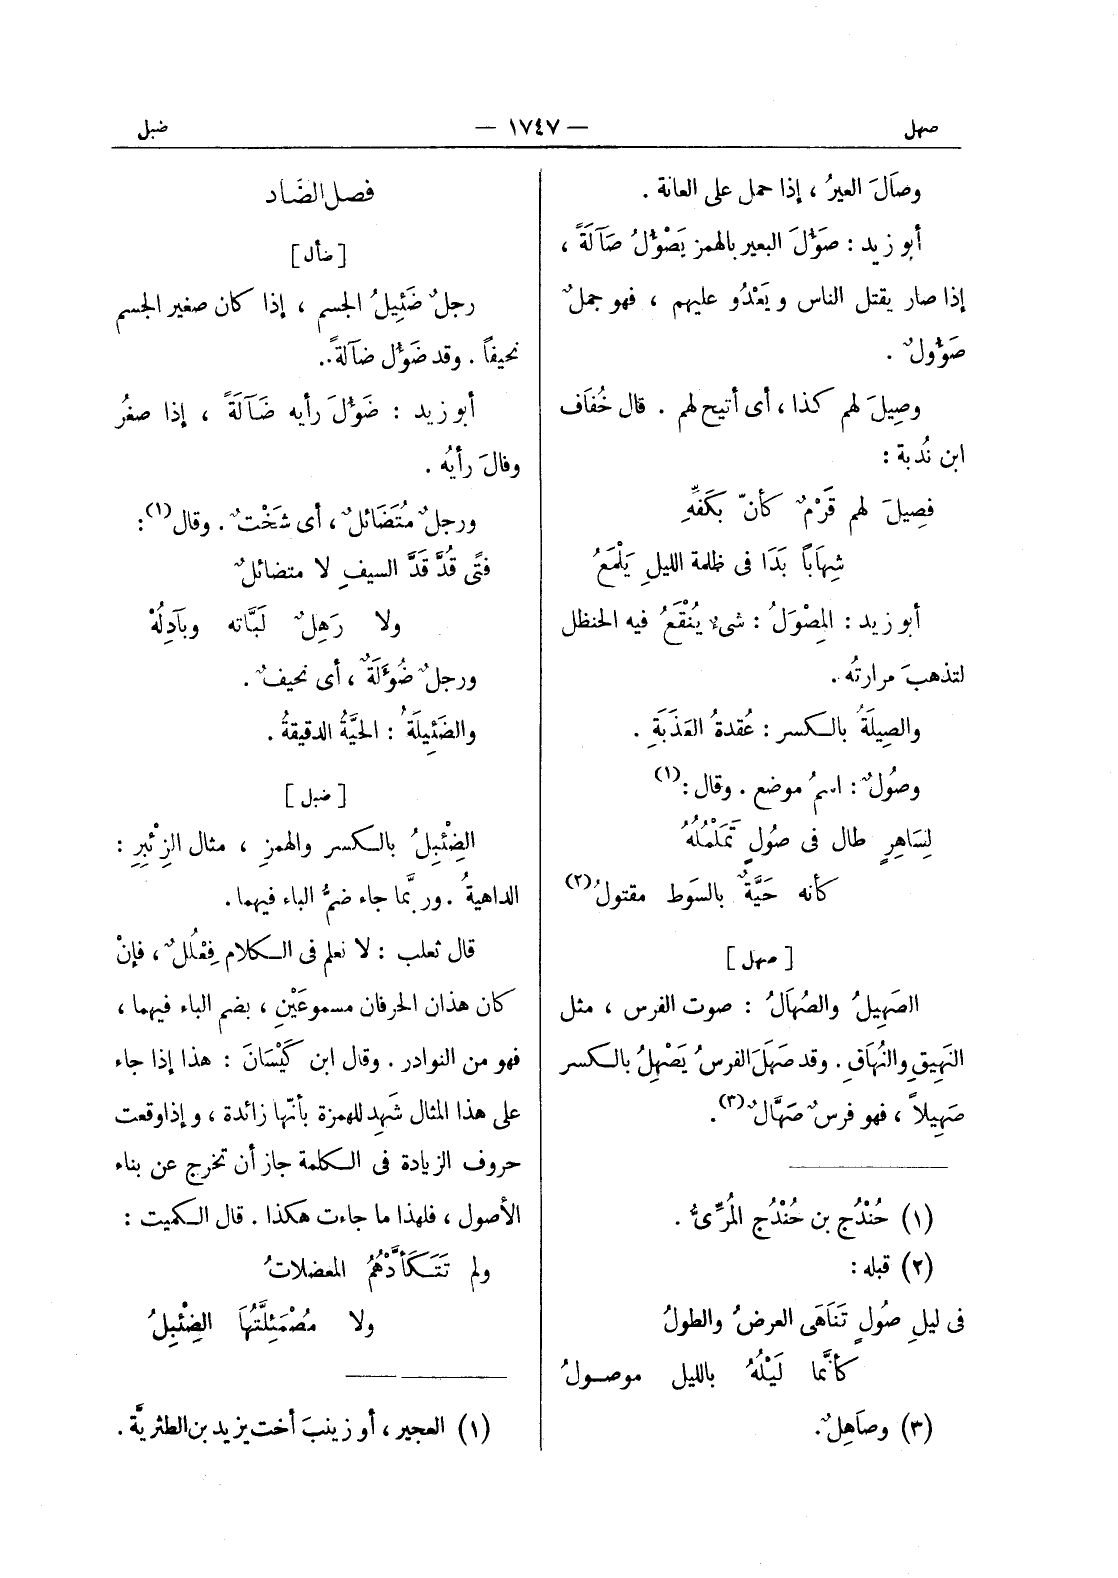 صهل
— ١٧٤٧ —
ضبل
وصَالَ العيرُ ، إذا حمل على العانة .
أبو زيد : صَؤُلَ البعير بالهمز يَصْؤُلُ صَآلَةً ،
إذا صار يقتل الناس ويَعْدُو عليهم ، فهو جملٌ
صَؤُولٌ .
وصِيلَ لهم كذا ، أى أتيح لهم . قال خُفَاف
ابن نُدبة :
فصِيلَ لهم قَرْمٌ كأنّ بكَفِّهِ
شِهَاباً بَدَا فى ظلمة الليلِ يَلْمَعُ
أبو زيد : المِصْوَلُ : شىءٌ يُنْقَعُ فيه الحنظل
لتذهبَ مرارتُه .
والصِيلَةُ بالكسر : عُقدةُ العَذَبَةِ .
وصُولٌ : اسمُ موضع . وقال : (١)
لِسَاهِرٍ طال فى صُولٍ تَمَلْمُلُهُ
كأنه حَيَّةٌ بالسَوط مقتولُ (٢)
[ صهل ]
الصَهِيلُ والصُهَالُ : صوت الفرس ، مثل
النَهِيقِ والنُهَاقِ . وقد صَهَلَ الفرسُ يَصْهِلُ بالكسر
صَهِيلاً ، فهو فرسٌ صَهَّالٌ (٣) .
(١) حُنْدُج بن حُنْدُج المُرِّىُّ .
(٢) قبله :
فى ليلِ صُولٍ تَنَاهَى العرضُ والطولُ
كأنَّما لَيْلُهُ بالليل موصولُ
(٣) وصَاهِلٌ .
فصل الضَاد
[ ضأل ]
رجلٌ ضَئِيلُ الجسم ، إذا كان صغير الجسم
نحيفاً . وقد ضَؤُل ضآلةً .
أبو زيد : ضَؤُلَ رأيه ضَآلَةً ، إذا صغُر
وفالَ رأيُه .
ورجلٌ مُتَضَائلٌ ، أى شَخْتٌ . وقال (١) :
فتًى قُدَّ قَدَّ السيفِ لا متضائلٌ
ولا رَهِلٌ لَبَّاته وبآدِلُهْ
ورجلٌ ضُؤَلَةٌ ، أى نحيفٌ .
والضَئِيلَةُ : الحَيَّةُ الدقيقةُ .
[ ضبل ]
الضِئْبِلُ بالكسر والهمزِ ، مثال الزِئْبِرِ :
الداهيةُ . وربَّما جاء ضمُّ الباء فيهما .
قال ثعلب : لا نعلم فى الكلام فِعْلُلٌ ، فإنْ
كان هذان الحرفان مسموعَيْنِ ، بضم الباء فيهما ،
فهو من النوادر . وقال ابن كَيْسَانَ : هذا إذا جاء
على هذا المثال شَهِد للهمزة بأنّها زائدة ، وإذا وقعت
حروف الزيادة فى الكلمة جاز أن تخرج عن بناء
الأصول ، فلهذا ما جاءت هكذا . قال الكميت :
ولم تَتَكَأَّدْهُمُ المعضلاتُ
ولا مُصْمَئِلَّتُهَا الضِئْبِلُ
(١) العجير ، أو زينبَ أخت يزيد بن الطثريَّة .